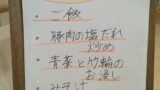 ・ご飯
・豚肉の塩だれ
炒め
・青菜と竹輪の
お浸し
・みそ汁